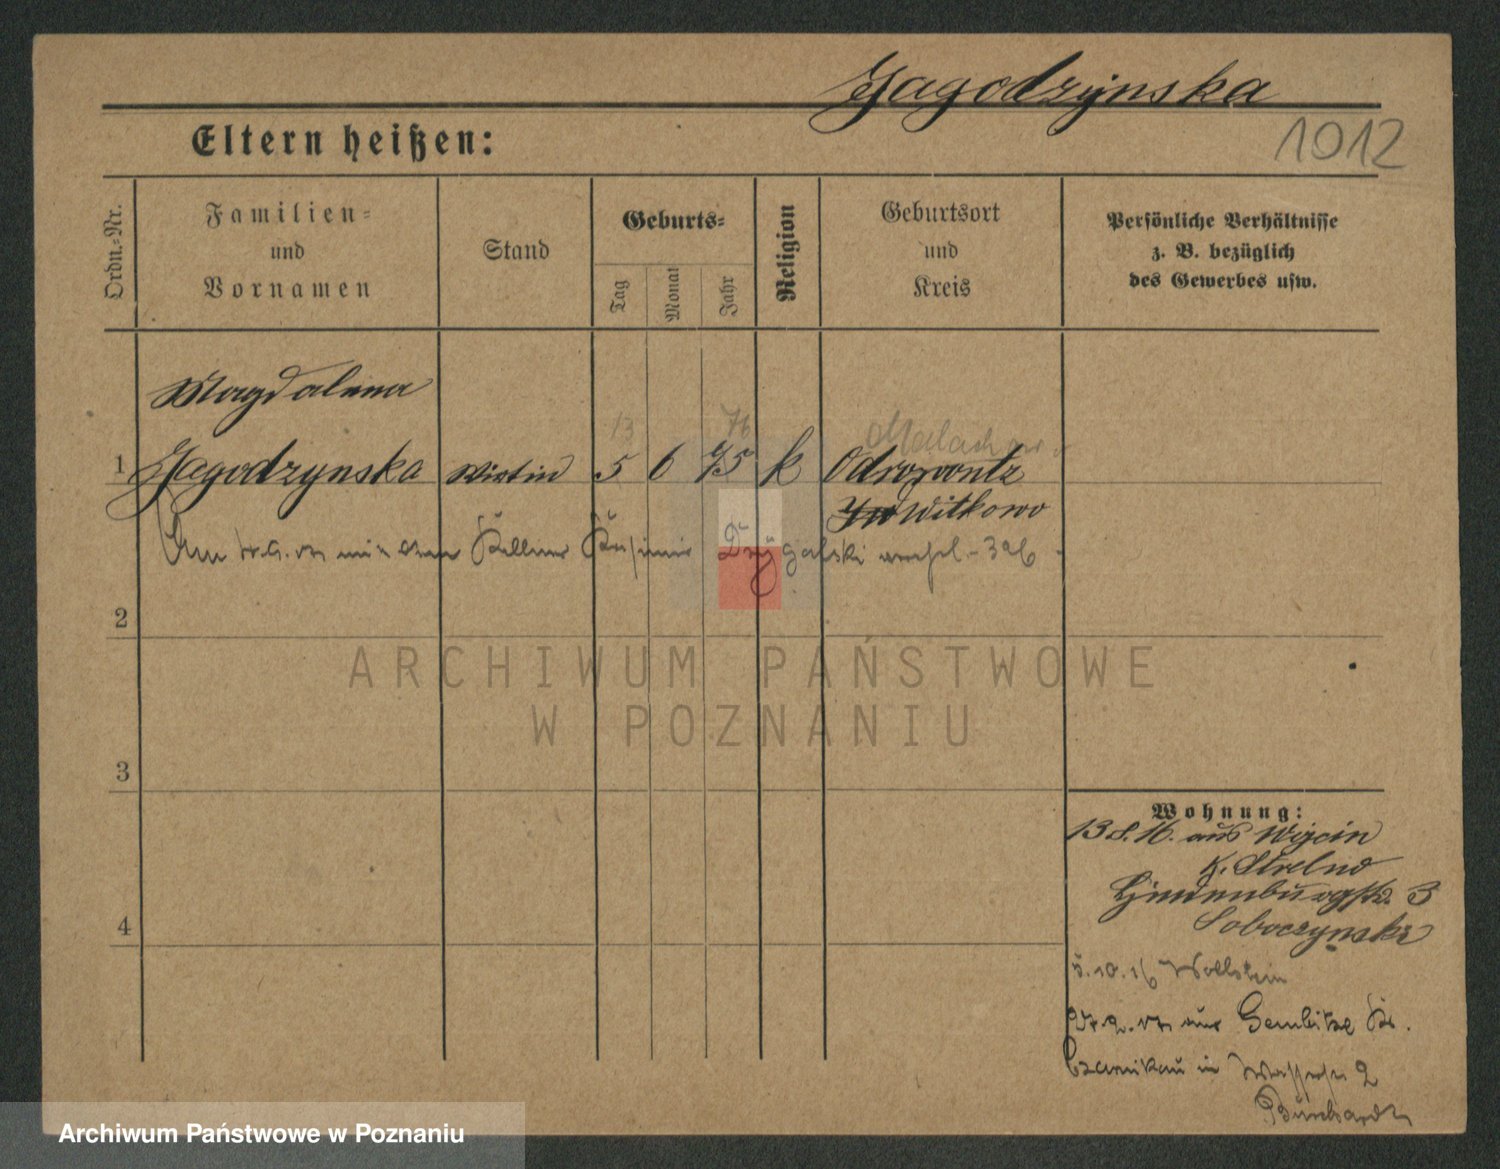 Jagodzynska
1012
Eltern heißen:
Ordn.-Nr.
Familien-
und
Vornamen
Stand
Geburts-
Tag
Monat
Jahr
Religion
Geburtsort
und
Kreis
Persönliche Verhältnisse
z. B. bezüglich
des Gewerbes usw.
Magdalena
13 76
1 Jagodzynska Wirtin 5 6 75 k Odrowontz
Witkowo
Kellner Kasimir Drygalski 326
2
ARCHIWUM PAŃSTWOWE
W POZNANIU
3
Wohnung:
13.8.16. aus Wojcin
K. Strelno
3
4
Soboczynski
5.10.16 Wollstein
27.2.17 aus Gembitze Kr.
Czarnikau in 2
Burchardt
Archiwum Państwowe w Poznaniu